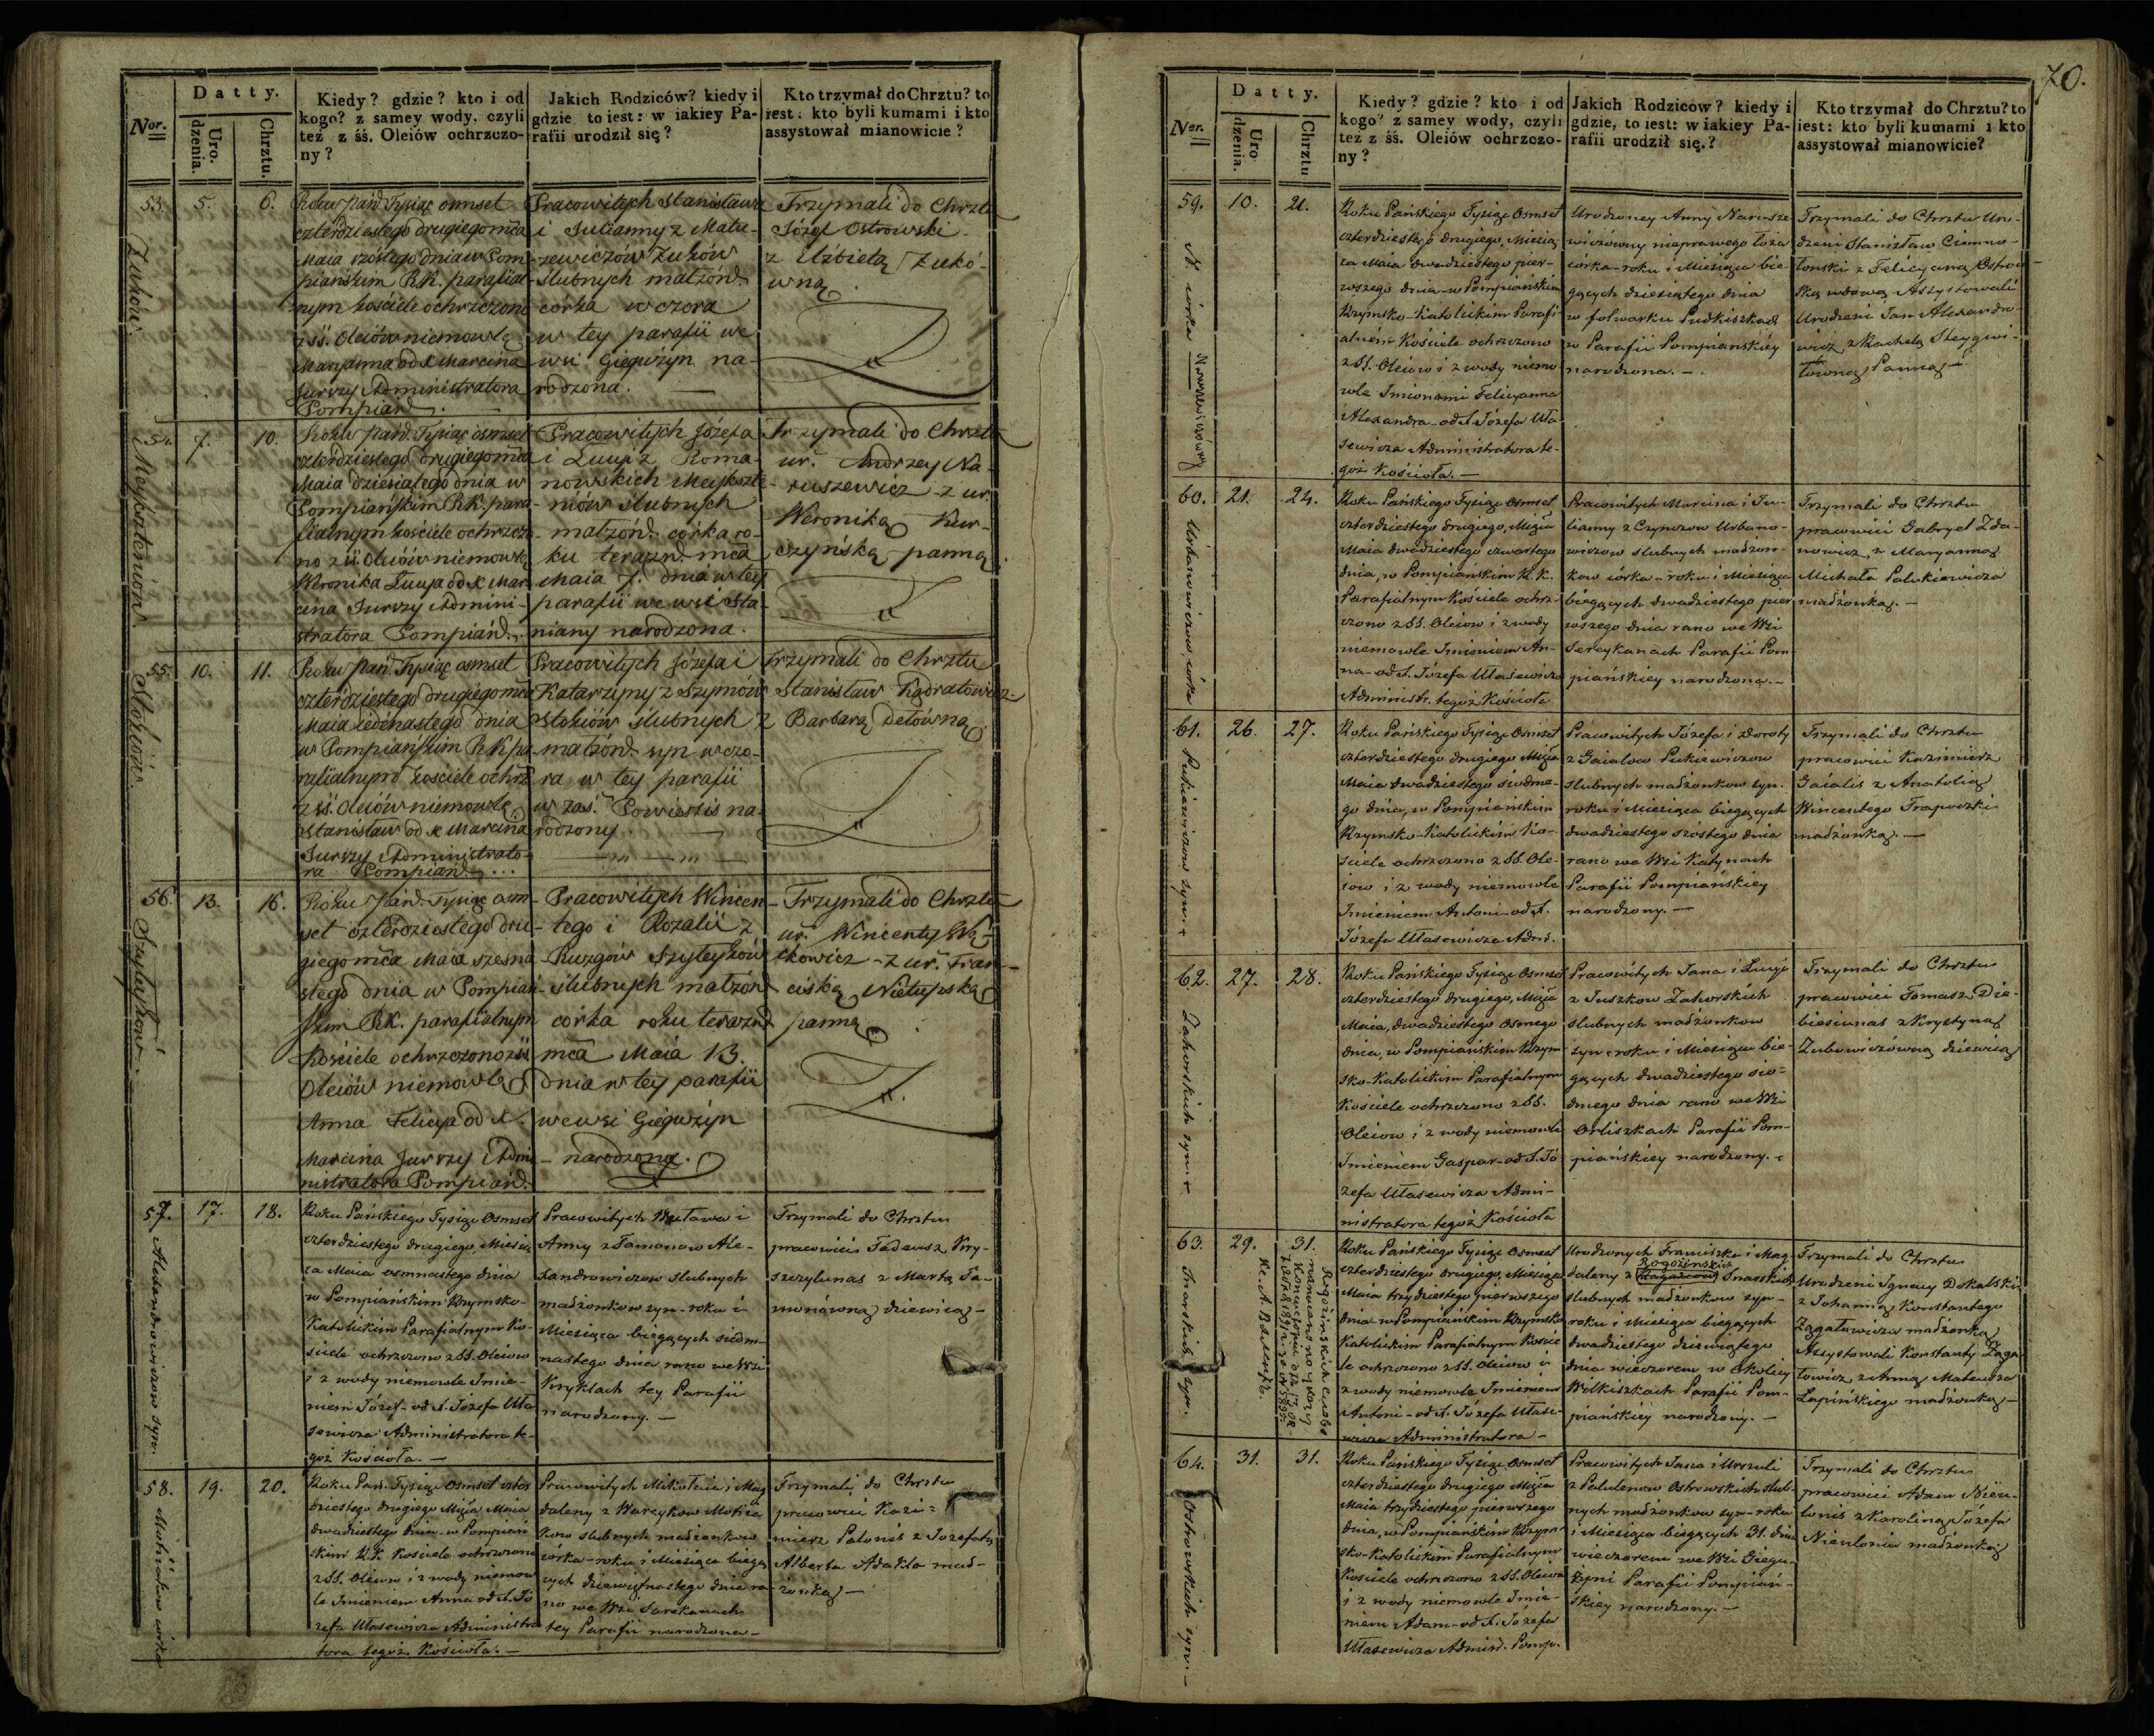 Datty.
Nor.
Uro.
dzenia.
Chrztu.
Kiedy? gdzie? kto i od
kogo? z samey wody, czyli
też z śś. Oleiów ochrzczo-
ny?
Jakich Rodziców? kiedy i
gdzie, to iest: w iakiey Pa-
rafii urodził się?
Kto trzymał do Chrztu? to
iest: kto byli kumami i kto
assystował mianowicie?
53.
5.
6.
Roku Pańd. Tysiąc osmset
czterdziestego drugiego mca
Maia szóstego dnia w Pom-
piańskim R.K. parafial-
nym kościele ochrzczono
z śś. Oleiów niemowlę
Maryanna od X Marcina
Jurszy Administratora
Pompiańd.
Pracowitych Stanisława
i Julianny z Matu-
zewiczów Żuków
ślubnych małżond.
córka wczora
w tey parafii we
wsi Giegużyn na-
rodzona.
Trzymali do Chrztu
Józef Ostrowski
z Elżbietą Żukó-
wną.
Żuków
54.
7.
10.
Roku Pańd. Tysiąc osmset
czterdziestego drugiego mca
Maia dziesiątego dnia w
Pompiańskim R.K. para-
fialnym kościele ochrzczo-
no z śś. Oleiów niemowlę
Weronika Łucya od X Mar-
cina Jurszy Admini-
stratora Pompiańd.
Pracowitych Józefa
i Łucyi z Roma-
nowskich Meyszte-
niów ślubnych
małżond. córka ro-
ku terazn. mca
Maia 7. dnia w tey
parafii we wsi Sta-
niany narodzona.
Trzymali do Chrztu
ur. Andrzey Na-
ruszewicz z ur.
Weroniką Kur-
czyńską panną.
55.
10.
11.
Roku Pańd. Tysiąc osmset
czterdziestego drugiego mca
Maia iedenastego dnia
w Pompiańskim R.K. pa-
rafialnym kościele ochrz.
z śś. Oleiów niemowlę
Stanisław od X Marcina
Jurszy Administrato-
ra Pompiańd...
Pracowitych Józefa i
Katarzyny z Szymów
Stokiów ślubnych
małżond. syn wczo-
ra w tey parafii
w zaś. Powierzis na-
rodzony.
Trzymali do Chrztu
Stanisław Kądratowicz
z Barbarą Detówną.
Stokiów.
56.
13.
16.
Roku Pańd. Tysiąc osm-
set czterdziestego dru-
giego mca Maia szesna-
stego dnia w Pompiań-
skim R.K. parafialnym
Kościele ochrzczono z śś
Oleiów niemowlę
Anna Felicya od X.
Marcina Jurszy Admi-
nistratora Pompiańd.
Pracowitych Wincen-
tego i Rozalii z
Ruzgów Szyleyków
ślubnych małżond
córka roku terazn.
mca Maia 13.
dnia w tey parafii
we wsi Giegużyn
narodzona.
Trzymali do Chrztu
ur. Wincenty Wą-
ckowicz z ur. Fran-
ciszką Nietupską
panną
Szyleyków.
57.
17.
18.
Roku Pańskiego Tysiąc Osmset
czterdziestego drugiego, Miesią-
ca Maia osmnastego dnia
w Pompiańskim Rzymsko-
Katolickim Parafialnym Ko-
ściele ochrzczono z SS. Oleiow
i z wody niemowle Imie-
niem Józef - od X. Józefa Uła-
sewicza Administratora te-
goż Kościoła. —
Pracowitych Wacława i
Anny z Tamonow Ale-
xandrowiczow slubnych
madżonkow syn - roku i
Miesiąca bieżących siedm-
nastego dnia rano we Wsi
Kryklach tey Parafii
narodzony. —
Trzymali do Chrztu
pracowici Tadeusz Kry-
szczylunas z Martą Ta-
monówną dziewicą —
Alexandrowiczow syn.
58.
19.
20.
Roku Pań. Tysiąc Osmset czter-
dziestego drugiego Miesią. Maia
dwudziestego dnia - w Pompiań-
skim R.K. Kościele ochrzczono
z SS. Oleiow i z wody niemow-
le Imieniem Anna od X. Jó-
zefa Ułasewicza Administra-
tora tegoż Kościoła. —
Pracowitych Mikołaia i Mag-
daleny z Wareykow
slubnych madżonkow
córka - roku i Miesiąca bieżą-
cych dziewiętnastego dnia ra-
no we Wsi Sarekanach
tey Parafii narodzona —
Trzymali do Chrztu
pracowici Kazi-
mierz Palonis z Jozefatą
Alberta Adakla mad-
żonką —
70.
Datty.
Nor.
Uro
dzenia.
Chrztu
Kiedy? gdzie? kto i od
kogo? z samey wody, czyli
też z śś. Oleiów ochrzczo-
ny?
Jakich Rodziców? kiedy i
gdzie, to iest: w iakiey Pa-
rafii urodził się.?
Kto trzymał do Chrztu? to
iest: kto byli kumami i kto
assystował mianowicie?
59.
10.
21.
Roku Pańskiego Tysiąc Osmset
czterdziestego drugiego, Miesią-
ca Maia dwudziestego pier-
wszego dnia - w Pompiańskim
Rzymsko-Katolickim Parafi-
alném Kościele ochrzczono
z SS. Oleiow i z wody niemo-
wle Imionami Felicyanna
i Alexandra - od X. Józefa Uła-
sewicza Administratora te-
goż Kościoła. —
Urodzoney Anny Narusze-
wiczówny nieprawego łoża
córka - roku i Miesiąca bie-
żących dziesiątego dnia
w folwarku Pudkiszkach
w Parafii Pompiańskiéy
narodzona. —
Trzymali do Chrztu Uro-
dzeni Stanisław Ciemno-
łonski z Felicyaną Ostrow-
ską wdową Assystowali
Urodzeni Jan Alexandro-
wicz z Rachelą Steygwi-
łowną Panną —
N. córka Naruszewiczówny
60.
21.
24.
Roku Pańskiego Tysiąc Osmset
czterdziestego drugiego, Miesią.
Maia dwudziestego czwartego
dnia, w Pompiańskim R. K.
Parafialnym Kościele ochrz-
czono z SS. Oleiow i z wody
niemowle Imieniem An-
na - od X. Józefa Ułasewicza
Administr. tegoż Kościoła
Pracowitych Marcina i Ju-
lianny z Czynczow Urbano-
wiczow slubnych madżon-
kow córka - roku i Miesiąca
bieżących dwudziestego pier-
wszego dnia rano we Wsi
Sereykanach Parafii Pom-
piańskiey narodzona. —
Trzymali do Chrztu
pracowici Gabryel Zda-
nowicz z Maryanną
Michała Palukiewicza
madżonką. —
Urbanowiczow córka
61.
26.
27.
Roku Pańskiego Tysiąc Osmset
czterdziestego drugiego Miesią.
Maia dwudziestego siódme-
go dnia, w Pompiańskim
Rzymsko-Katolickim Ko-
ściele ochrzczono z SS. Ole-
iow i z wody niemowle
Imieniem Antoni - od X.
Józefa Ułasewicza Admi.
Pracowitych Józefa i Doroty
z Gaialow Pukiewiczow
slubnych madżonkow syn.
roku i Miesiąca bieżących
dwudziestego szóstego dnia
rano we Wsi Katynach
Parafii Pompiańskiey
narodzony. —
Trzymali do Chrztu
pracowici Kazimierz
Gaialis z Anatolią
Wincentego Trapuszki
madżonką. —
Pukiewiczow syn.
62.
27.
28.
Roku Pańskiego Tysiąc Osmset
czterdziestego drugiego, Miesią.
Maia, dwudziestego Osmego
dnia, w Pompiańskim Rzym-
sko-Katolickim Parafialnym
Kościele ochrzczono z SS.
Oleiow i z wody niemowle
Imieniem Gaspar - od X. Jó-
zefa Ułasewicza Admi-
nistratora tegoż Kościoła
Pracowitych Jana i Łucyi
z Juszkow Zahorskich
slubnych madżonkow
syn - roku i Miesiąca bie-
żących dwudziestego sió-
dmego dnia rano we Wsi
Orliszkach Parafii Pom-
piańskiey narodzony.
Trzymali do Chrztu
pracowici Tomasz Die-
biesiunas z Krystyną
Zubowiczówną dziewicą
Zahorskich syn
63.
29.
31.
Roku Pańskiego Tysiąc Osmset
czterdziestego drugiego, Miesiąca
Maia trzydziestego pierwszego
dnia - w Pompiańskim Rzymsko
Katolickim Parafialnym Koście-
le ochrzczono z SS. Oleiow i
z wody niemowle Imieniem
Antoni - od X. Józefa Ułase-
wicza Administratora —
Urodzonych Franciszka i Mag-
daleny z
Rogozinskich
Snarskich
slubnych madżonkow syn -
roku i Miesiąca bieżących
dwudziestego dziewiątego
dnia wieczorem w Okolicy
Wilkiszkach Parafii Pom-
piańskiéy narodzony. —
Trzymali do Chrztu
Urodzeni Ignacy Dokalski
z Johanną Konstantego
Zagatowicza madżonką
Assystowali Konstanty Zaga-
towicz z Anną Mateusza
Łapińskiego madżonką —
Snarskich syn.
64.
31.
31.
Roku Pańskiego Tysiąc Osmset
czterdziestego drugiego Miesią.
Maia trzydziestego pierwszego
dnia, w Pompiańskim Rzym-
sko-Katolickim Parafialnym
Kościele ochrzczono z SS. Oleiow
i z wody niemowle Imie-
niem Adam - od X. Józefa
Ułasewicza Admin. Pomp.
Pracowitych Jana i Urszuli
z Palulenow Ostrowskich slub-
nych madżonkow syn - roku
i Miesiąca bieżących 31. dnia
wieczorem we Wsi Giegu-
żyni Parafii Pompiań-
skiey narodzony. —
Trzymali do Chrztu
pracowici Adam Nieu-
lonis z Karoliną Józefa
Nieulonia madżonką
Ostrowskich syn. —